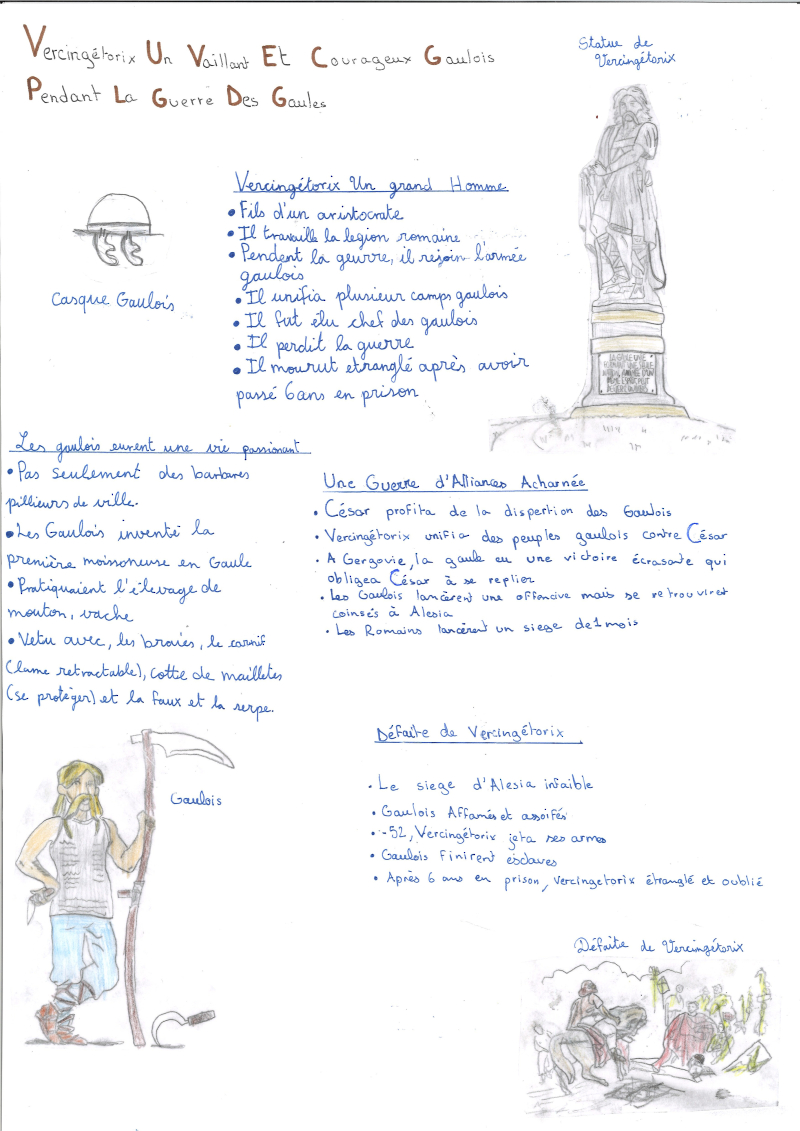 Vercingétorix Un Vaillant Et Courageux Gaulois
Pendant La Guerre Des Gaules
Statue de
Vercingétorix
Casque Gaulois
Vercingétorix Un grand Homme
• Fils d'un aristocrate
• Il travaille la legion romaine
• Pendent la geurre, il rejoin l'armée
gaulois
• Il unifia plusieur camps gaulois
• Il fut élu chef des gaulois
• Il perdit la guerre
• Il mourut etranglé après avoir
passé 6 ans en prison
LA GAULE UNIE
FORMANT UNE SEULE
NATION ANIMÉE D'UN
MÊME ESPRIT PEUT
Les gaulois eurent une vie passionant
• Pas seulement des barbares
pillieurs de ville.
• Les Gaulois inventé la
première moissoneuse en Gaule
• Pratiquaient l'élevage de
mouton, vache
• Vetu avec, les braies, le
(lame retractable), cotte de mailletes
(se protéger) et la faux et la serpe.
Une Guerre d'Alliances Acharnée
• César profita de la dispertion des Gaulois
• Vercingétorix unifia des peuples gaulois contre César
• A Gergovie, la gaule eu une victoire écrasante qui
obligea César à se replier
• Les Gaulois lancèrent une offencive mais se retrouviret
coinsés à Alesia
• Les Romains lancèrent un siege de 1 mois
Gaulois
Défaite de Vercingétorix
• Le siege d'Alesia infaible
• Gaulois Affamés et assoifés
• -52, Vercingétorix jeta ses armes
• Gaulois finirent esclaves
• Après 6 ans en prison, Vercingetorix étranglé et oublié
Défaite de Vercingétorix